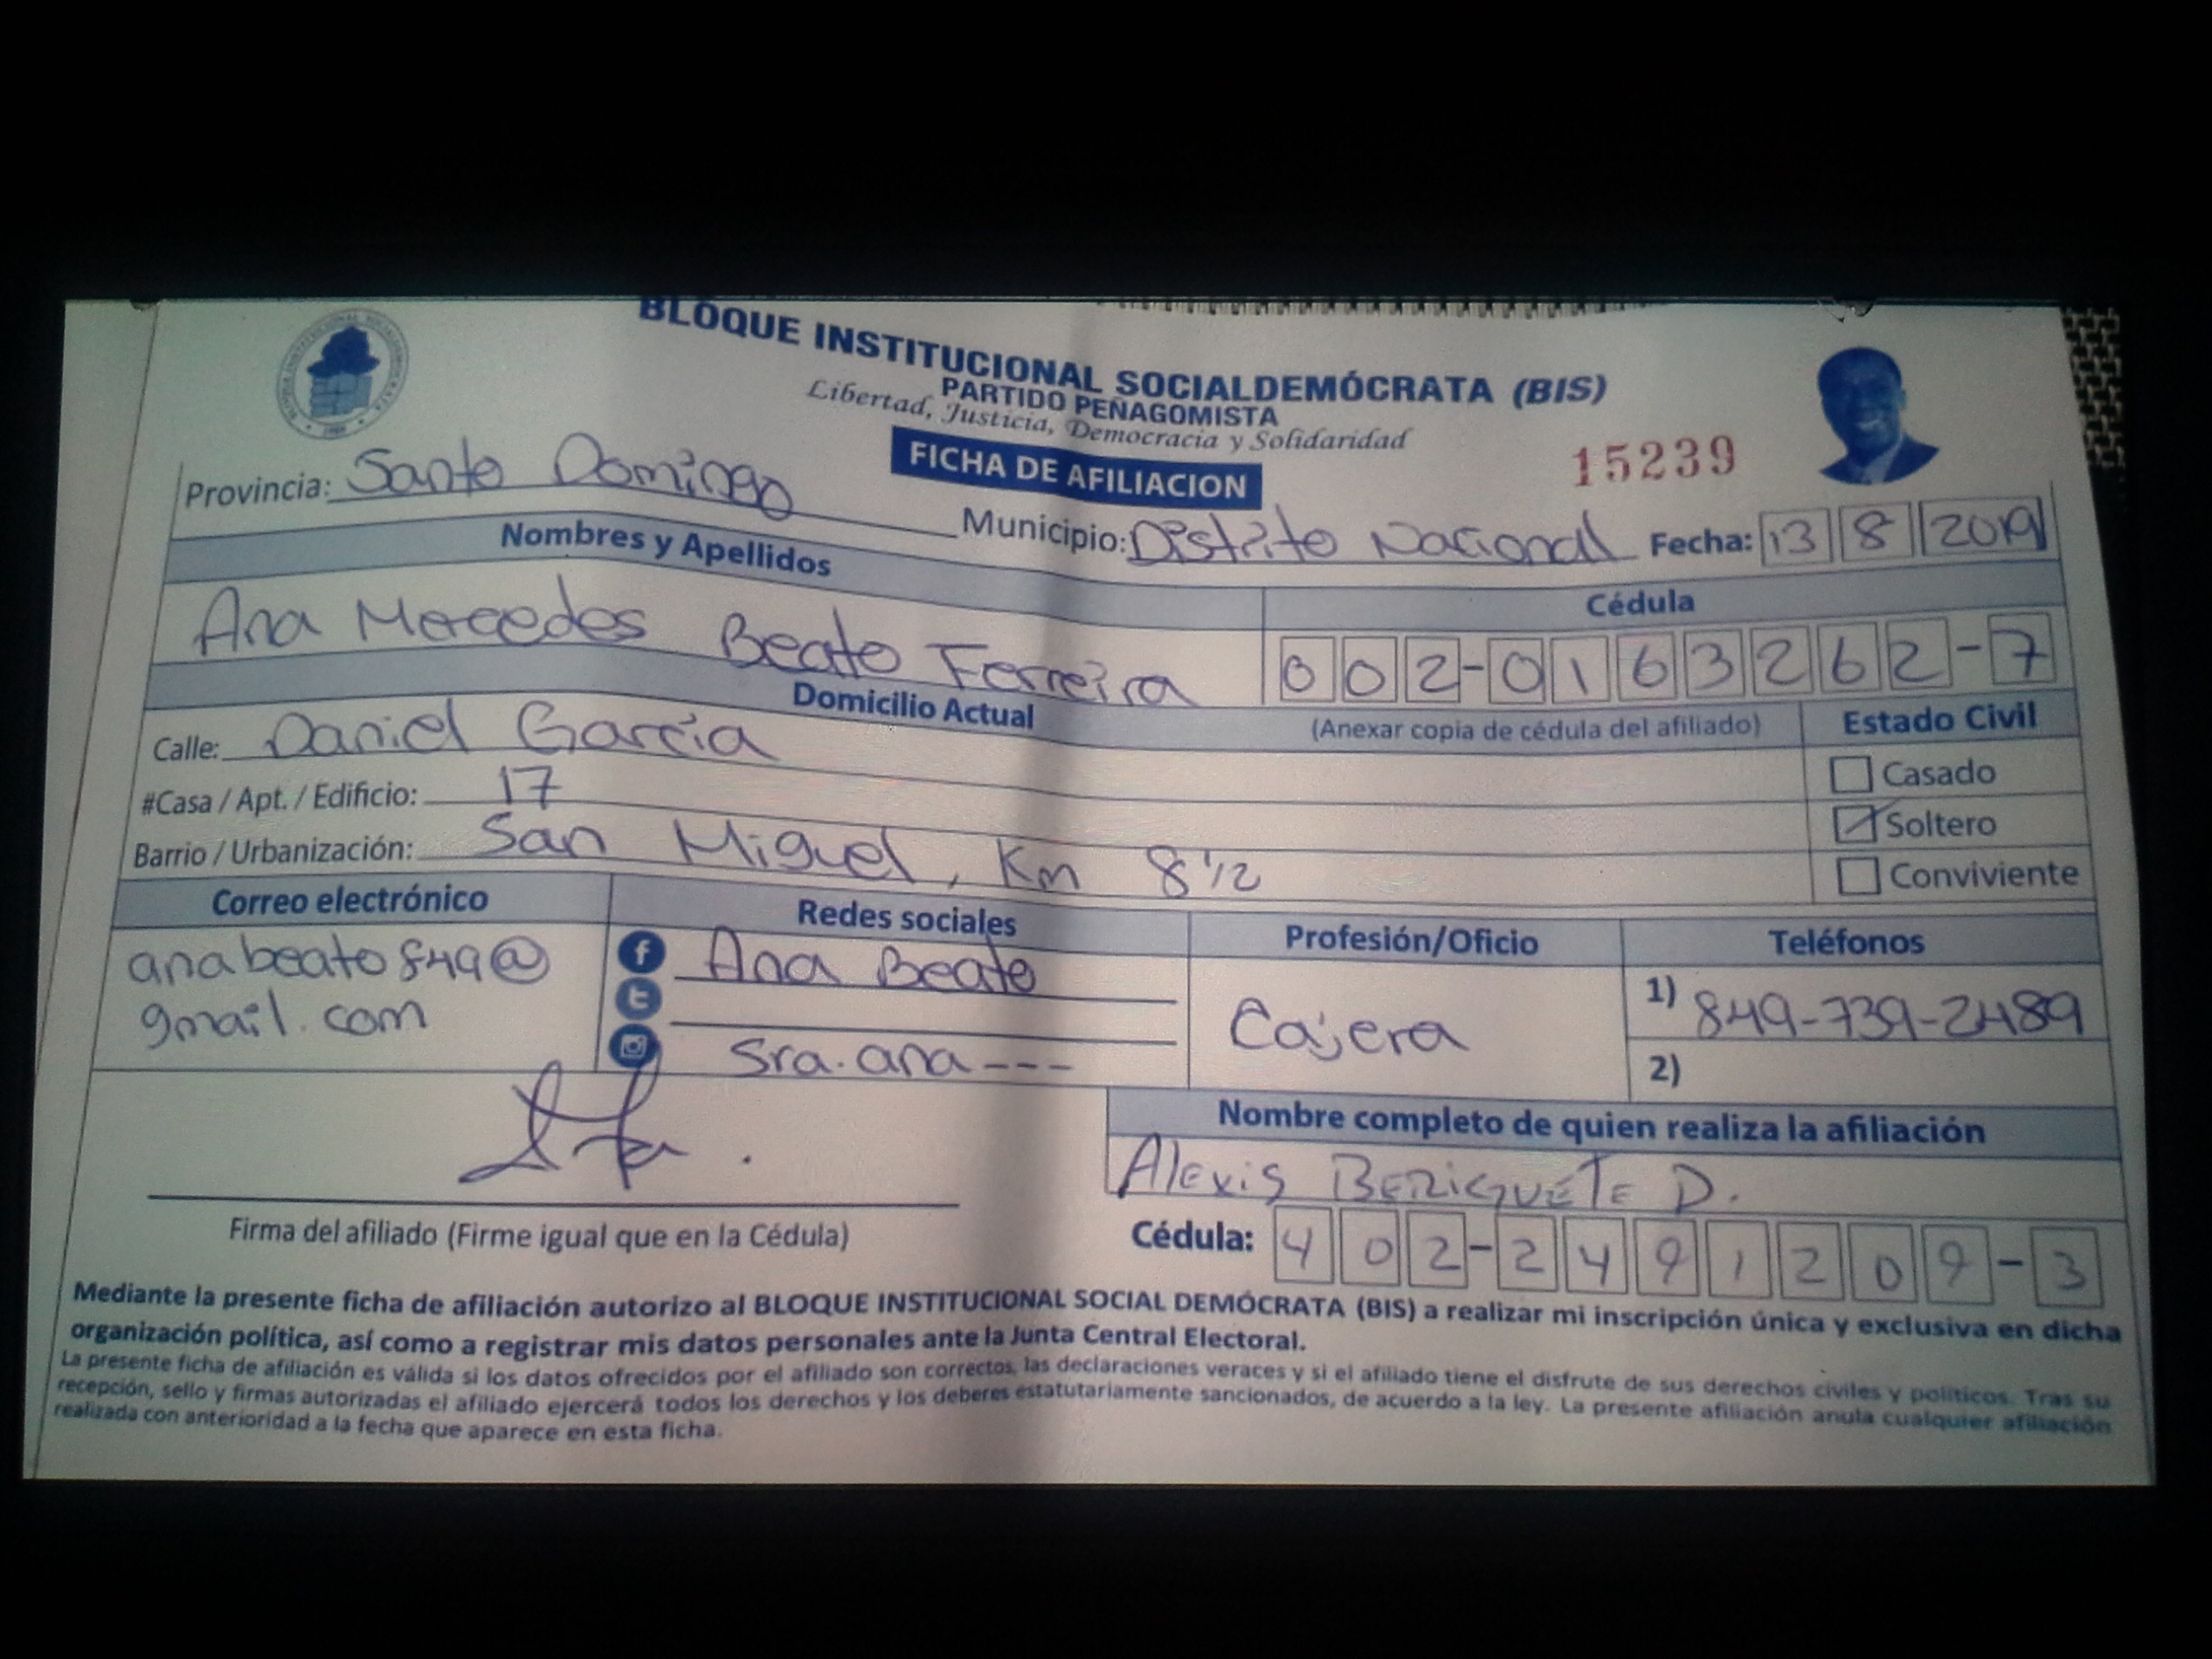 BLOQUE INSTITUCIONAL SOCIALDEMÓCRATA (BIS)
PARTIDO PEÑAGOMISTA
Libertad, Justicia, Democracia y Solidaridad
FICHA DE AFILIACION
15239
Provincia: Santo Domingo
Municipio: Distrito Nacional Fecha: 13 8 2019
Nombres y Apellidos
Cédula
Ana Mercedes Beato Ferreira
002-0163262-7
Domicilio Actual
(Anexar copia de cédula del afiliado)
Estado Civil
Calle: Daniel García
Casado
#Casa / Apt. / Edificio: 17
Soltero
Barrio / Urbanización: San Miguel, Km 8 1/2
Conviviente
Correo electrónico
Redes sociales
Profesión/Oficio
Teléfonos
anabeato849@
gmail.com
Ana Beato
Sra.ana---
Cajera
1) 849-739-2489
2)
Nombre completo de quien realiza la afiliación
Alexis BERIGUETE D.
Firma del afiliado (Firme igual que en la Cédula)
Cédula: 402-2491209-3
Mediante la presente ficha de afiliación autorizo al BLOQUE INSTITUCIONAL SOCIAL DEMÓCRATA (BIS) a realizar mi inscripción única y exclusiva en dicha
organización política, así como a registrar mis datos personales ante la Junta Central Electoral.
La presente ficha de afiliación es válida si los datos ofrecidos por el afiliado son correctos, las declaraciones veraces y si el afiliado tiene el disfrute de sus derechos civiles y politicos. Tras su
recepción, sello y firmas autorizadas el afiliado ejercerá todos los derechos y los deberes estatutariamente sancionados, de acuerdo a la ley. La presente afiliación anula cualquier afiliación
realizada con anterioridad a la fecha que aparece en esta ficha.